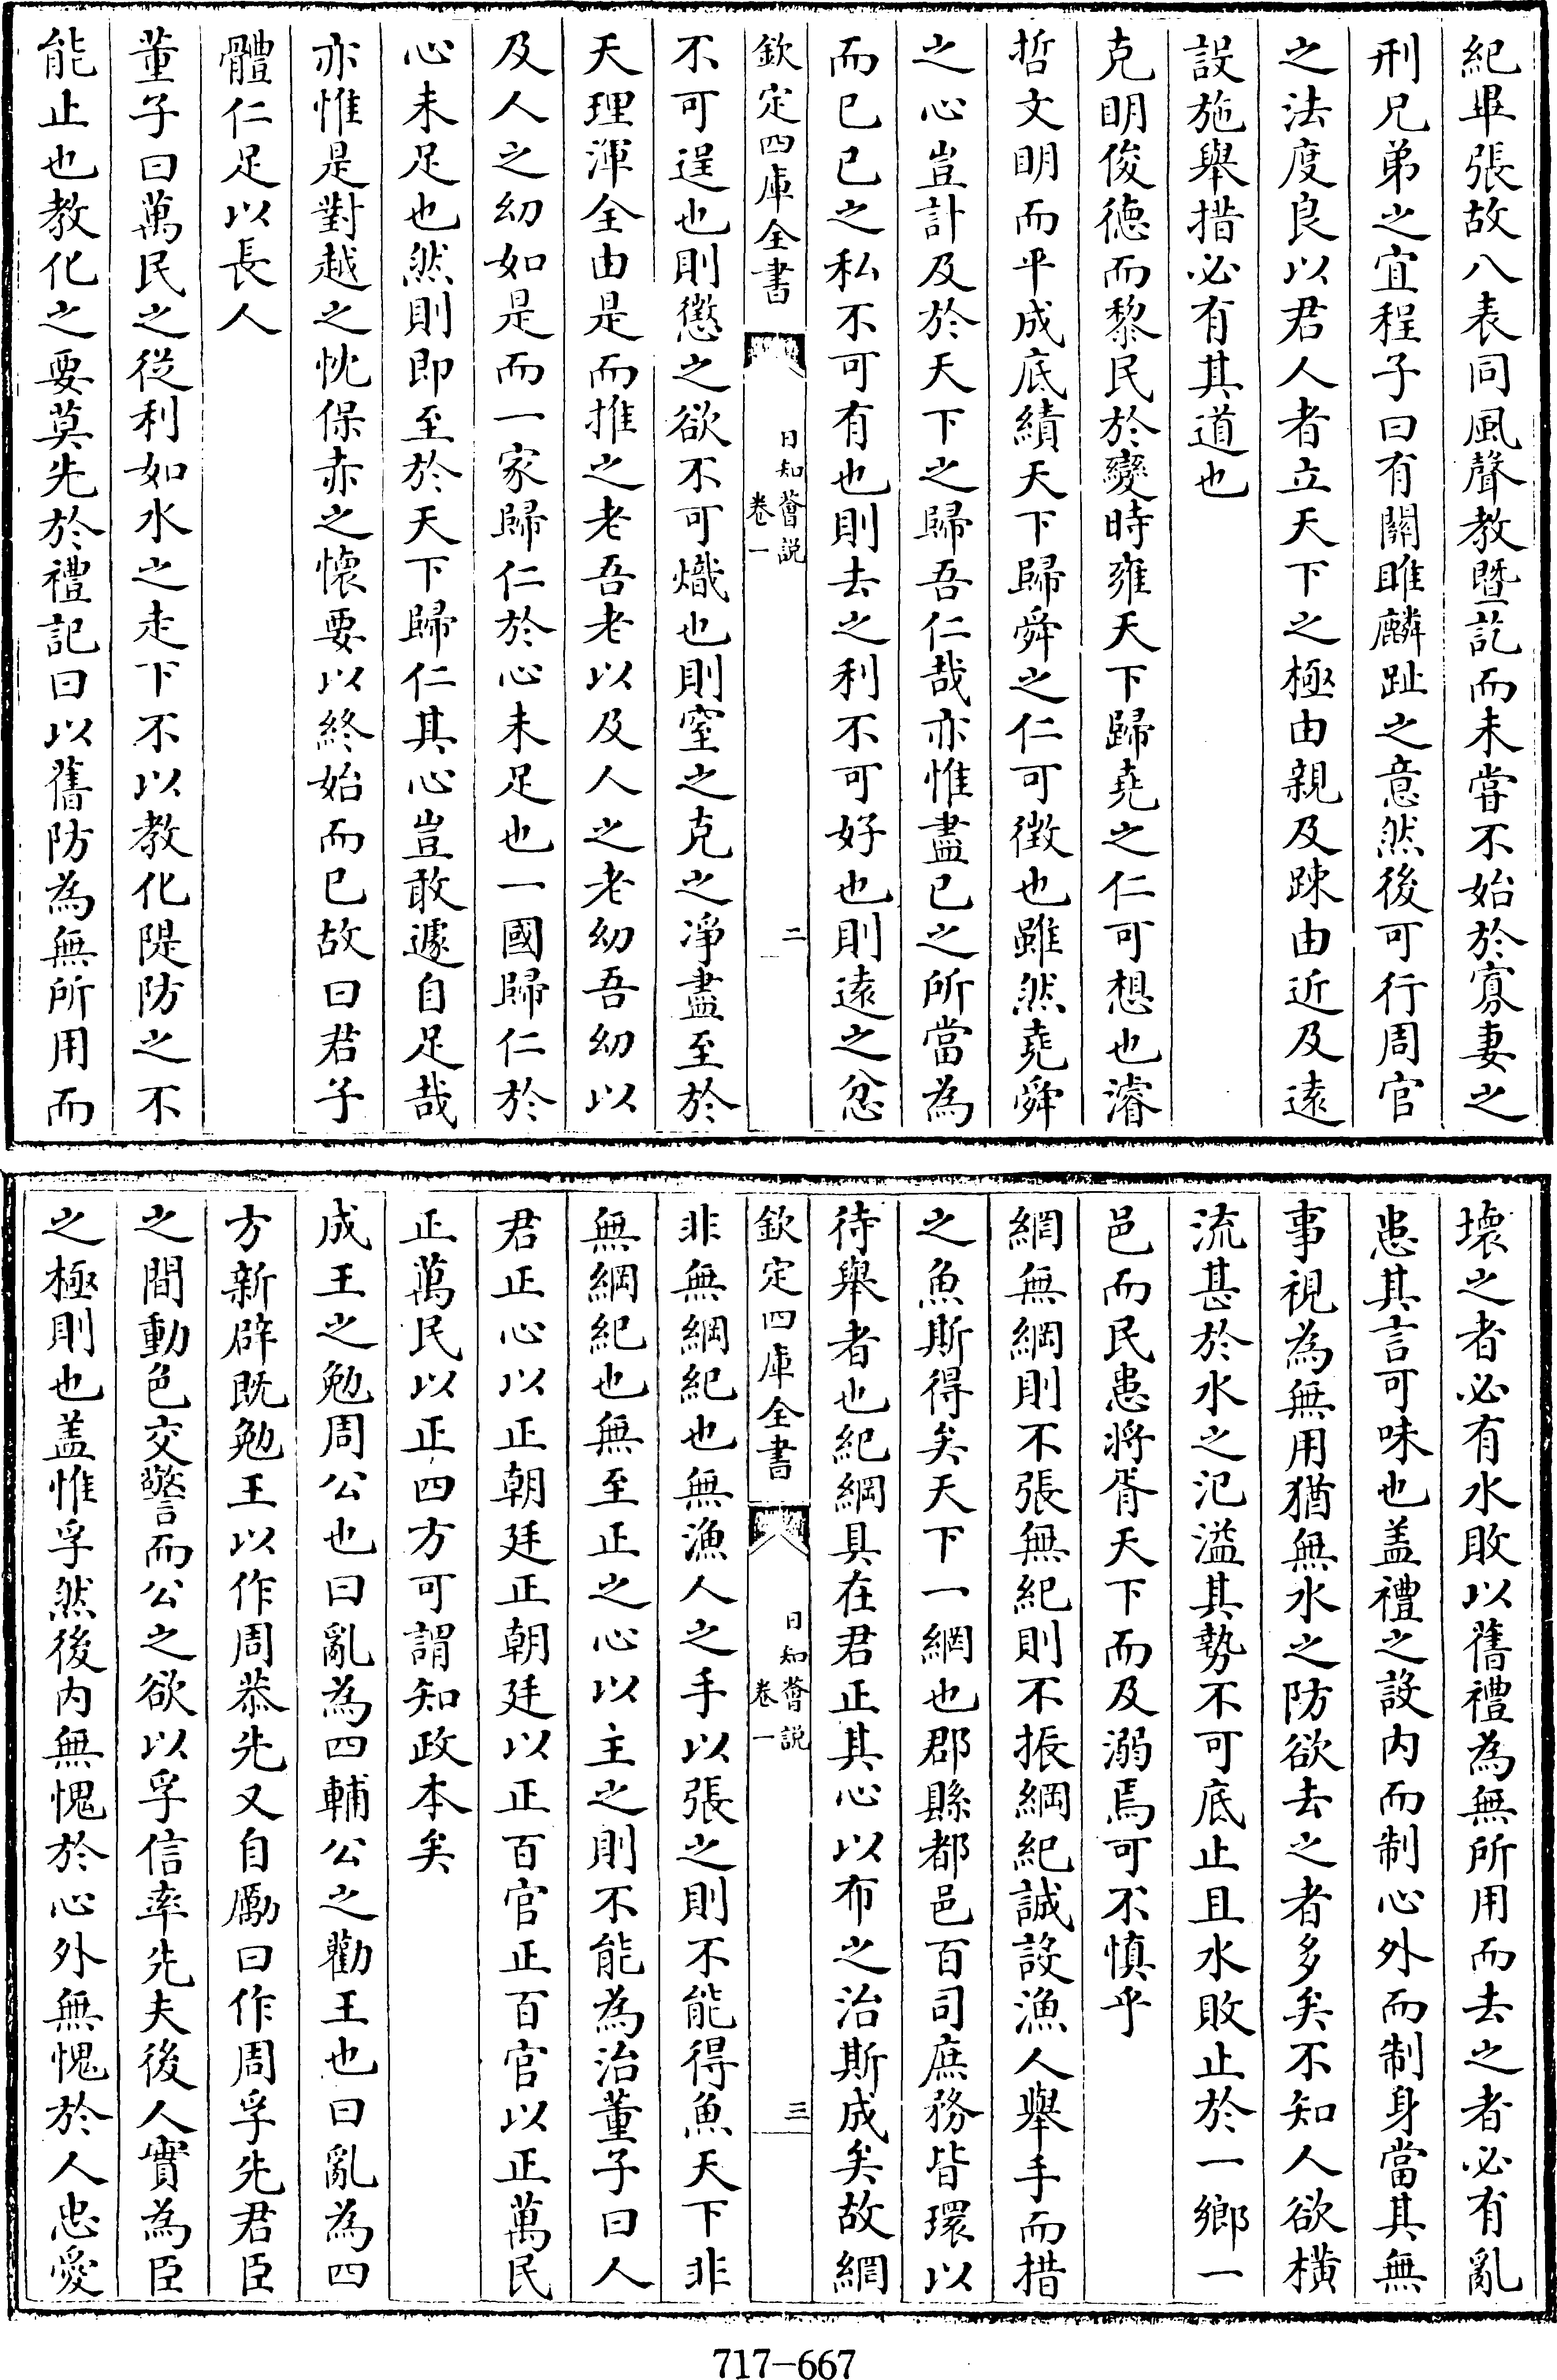 紀畢張故八表同風聲教曁訖而未嘗不始於寡妻之
刑兄弟之宜程子曰有關雎麟趾之意然後可行周官
之法度良以君人者立天下之極由親及踈由近及遠
設施舉措必有其道也
克明俊徳而黎民於變時雍天下歸堯之仁可想也濬
哲文明而平成底績天下歸舜之仁可徴也雖然堯舜
之心豈計及於天下之歸吾仁哉亦惟盡已之所當為
而已已之私不可有也則去之利不可好也則遠之忿
欽定四庫全書
日知薈説
卷一
二
不可逞也則懲之欲不可熾也則窒之克之凈盡至於
天理渾全由是而推之老吾老以及人之老幼吾幼以
及人之幼如是而一家歸仁於心未足也一國歸仁於
心未足也然則即至於天下歸仁其心豈敢遽自足哉
亦惟是對越之忱保赤之懷要以終始而已故曰君子
體仁足以長人
董子曰萬民之從利如水之走下不以教化隄防之不
能止也教化之要莫先於禮記曰以舊防為無所用而
壞之者必有水敗以舊禮為無所用而去之者必有亂
患其言可味也盖禮之設内而制心外而制身當其無
事視為無用猶無水之防欲去之者多矣不知人欲横
流甚於水之氾溢其勢不可底止且水敗止於一鄉一
邑而民患將胥天下而及溺焉可不慎乎
網無綱則不張無紀則不振綱紀誠設漁人舉手而措
之魚斯得矣天下一網也郡縣都邑百司庶務皆環以
待舉者也紀綱具在君正其心以布之治斯成矣故網
欽定四庫全書
日知薈説
卷一
三
非無綱紀也無漁人之手以張之則不能得魚天下非
無綱紀也無至正之心以主之則不能為治董子曰人
君正心以正朝廷正朝廷以正百官正百官以正萬民
正萬民以正四方可謂知政本矣
成王之勉周公也曰亂為四輔公之勸王也曰亂為四
方新辟既勉王以作周恭先又自勵曰作周孚先君臣
之間動色交警而公之欲以孚信率先夫後人實為臣
之極則也盖惟孚然後内無愧於心外無愧於人忠愛
717-667